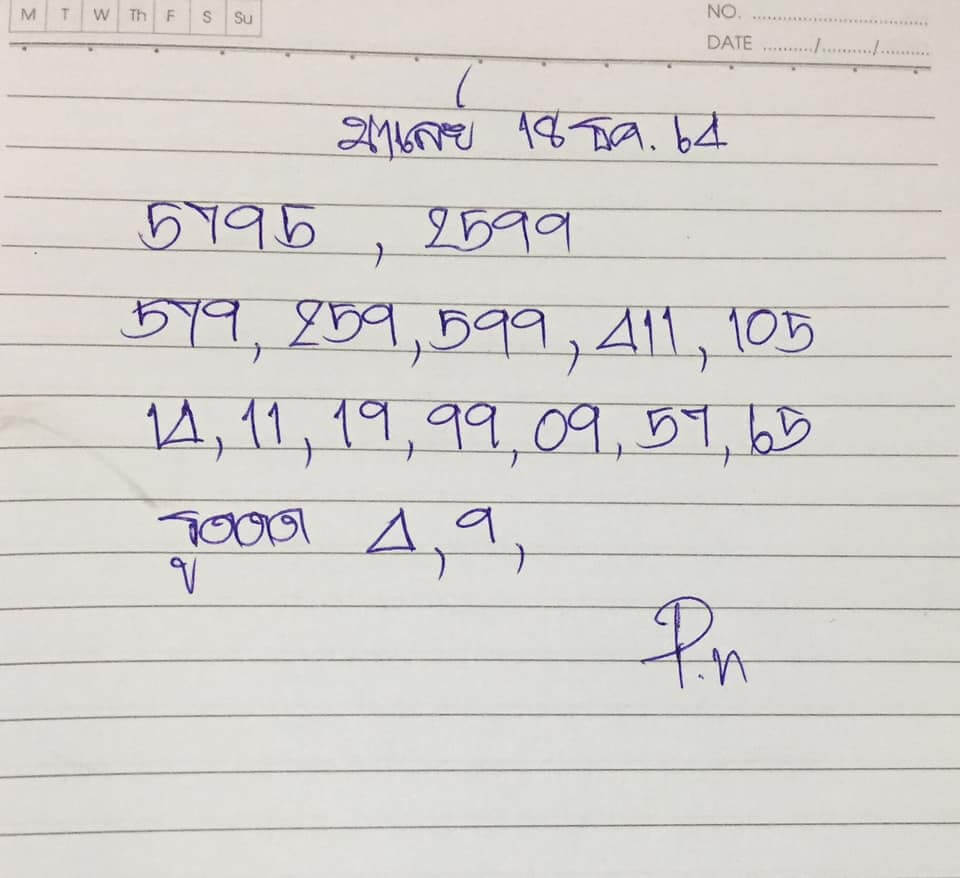 M T W Th F S Su
NO. ....................
DATE ........../........../..........
มาเลย์ 18 ธค. 64
5795 , 2599
579, 259, 599, 411, 105
14, 11, 19, 99, 09, 57, 65
รูดด 4, 9,
P.n